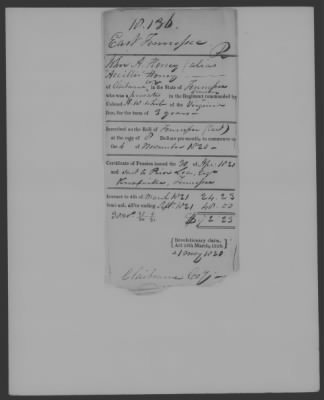 10.136.
East Tennessee
John A. Honey (alias
Honey
of Claiborne in the State of Tennessee
who was a private in the Regiment commanded by
Colonel of the Virginia
line, for the term of 3 years
Inscribed on the Roll of Tennessee (East)
at the rate of 8 Dollars per month, to commence on
the 4 of November 1820
Certificate of Pension issued the 30 of 1820
and sent to Esqr
Tennessee
Arrears to 4th of March 1821 24.23
Semi-anl. all'ce ending Sept 1821 48.00
$72.23
{Revolutionary claim,
Act 18th March, 1818.}
1820
Claiborne Coty